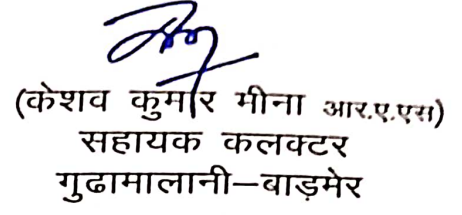 (केशव कुमार मीना आर.ए.एस)
सहायक कलक्टर
गुढामालानी–बाड़मेर